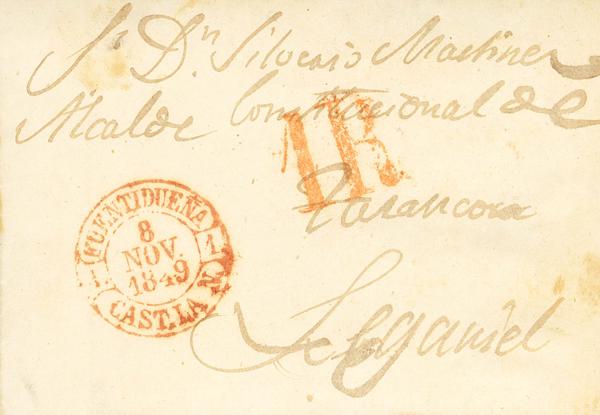 Sr. Dn. Silverio Martinez
Alcalde Constitucional de
1R
Tarancon
Leganiel
FUENTIDUEÑA
8
NOV.
1849
CAST. LA N.